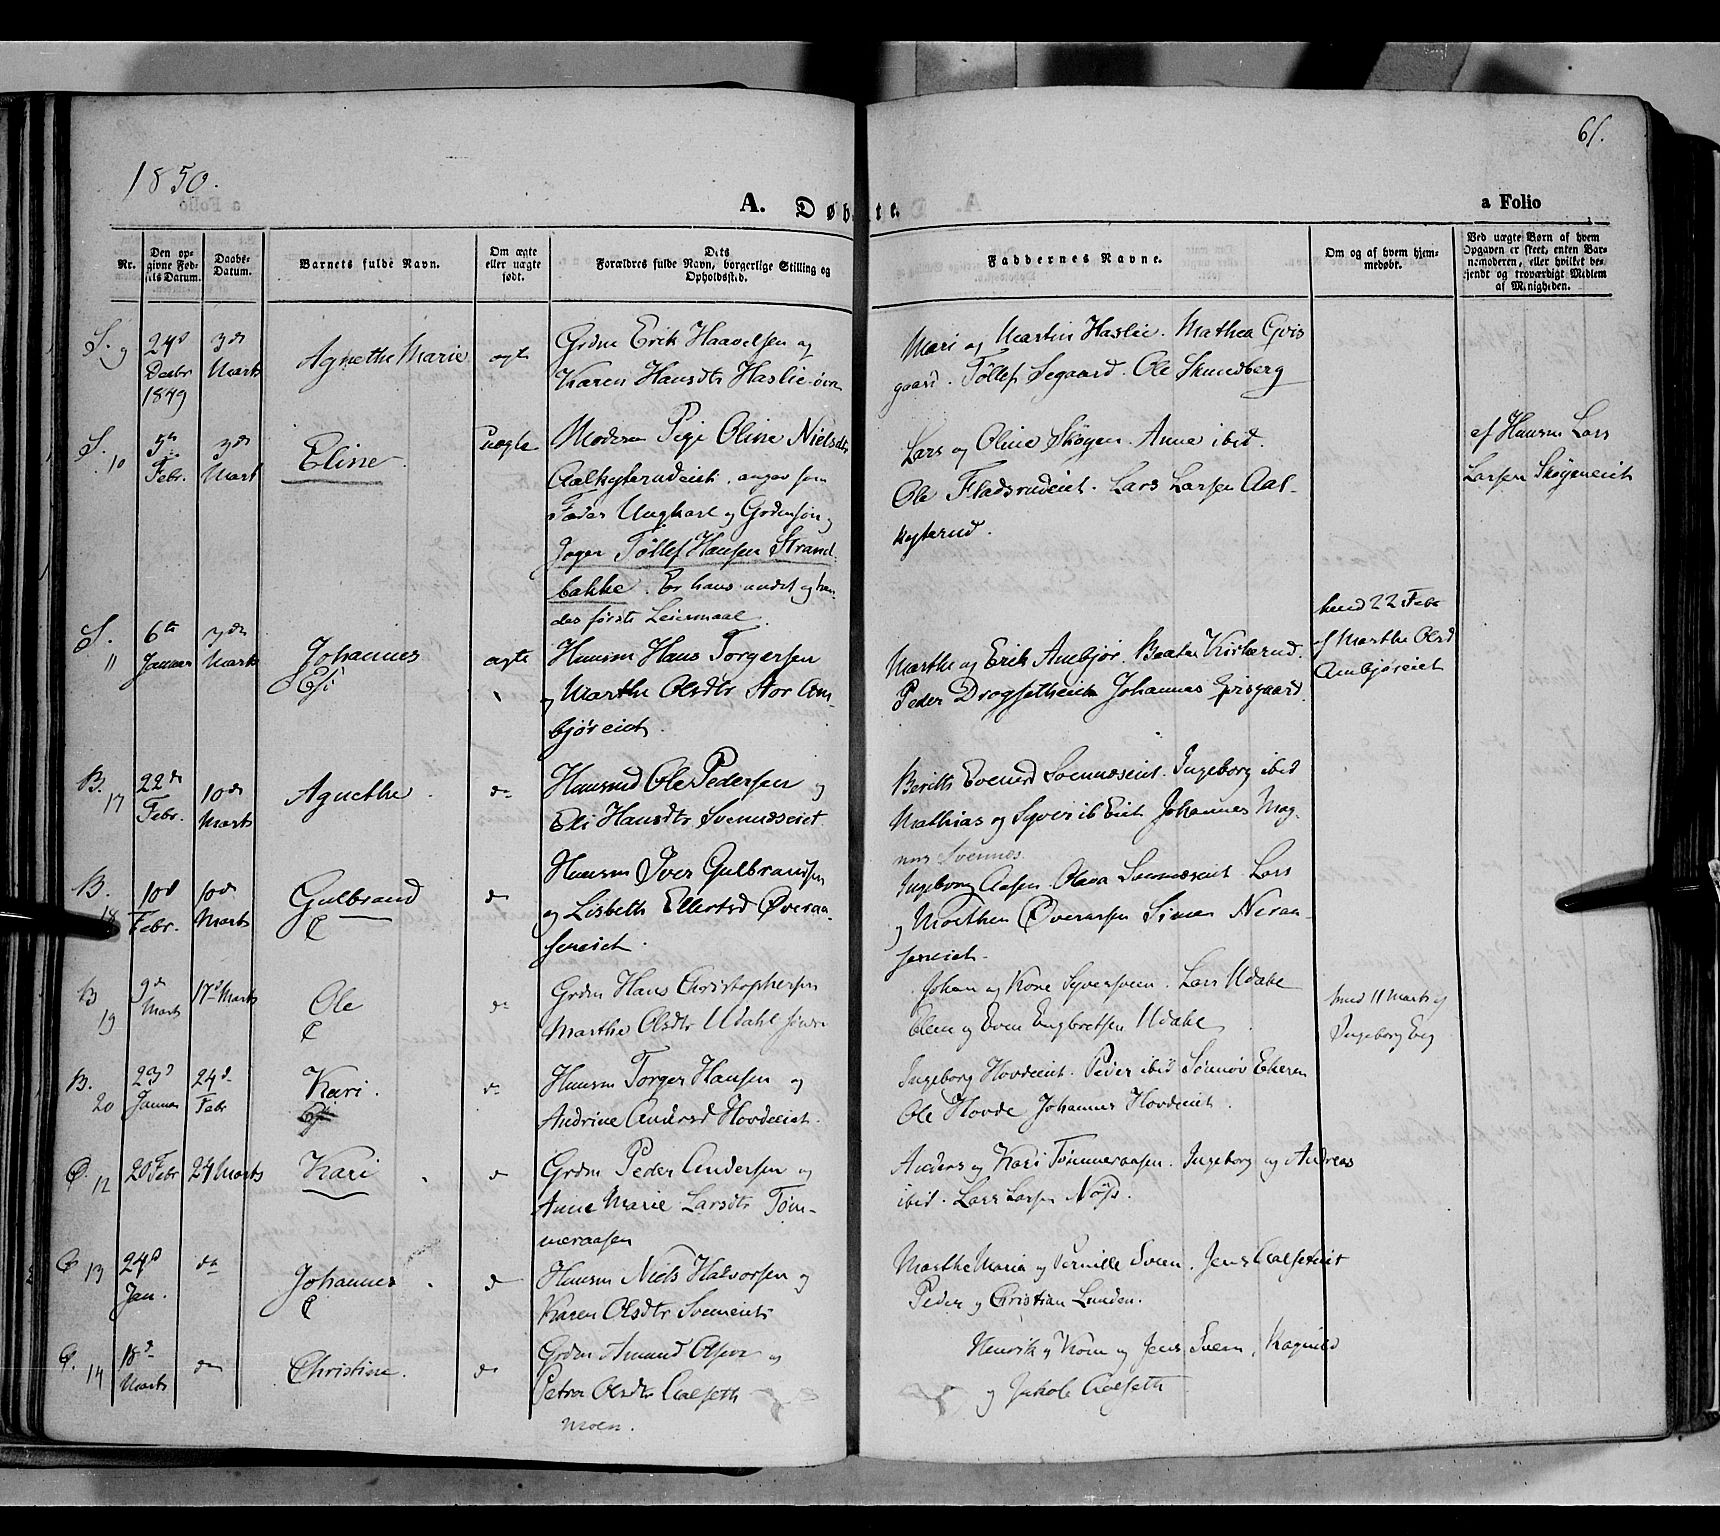 61.
1850.
A. Døbte.
a Folio
Nr.
Den op-
givne Fød-
sels Datum.
Daabs-
Datum.
Barnets fulde Navn.
Om ægte
eller uægte
født.
Dets
Forældres fulde Navn, borgerlige Stilling og
Opholdssted.
Faddernes Navne.
Om og af hvem hjem-
medøbt.
Ved uægte Børn af hvem
Opgaven er skeet, enten Bar-
nemoderen, eller hvilket be-
kjendt og troværdigt Medlem
af Menigheden.
S. 9
24d
Decbr
1849
3die
Marts
Agnethe Marie
ægte
Grdm Erik Haavelsen og
Karen Hansdtr Haslie
Mari og Martin Haslie. Mathea Gris
gaard. Tøllef Segaard. Ole Skundberg
S. 10
5te
Febr.
3die
Mart
Eline
uægte
Moderen Pige Oline Nielsdtr
Aalkysterudeiet, angav som
Fader Ungkarl og Grdmsøn og
Jæger Tøllef Hansen Strand-
bakke. Er hans andet og hen-
des første Leiermaal.
Lars og Oline Skøyen. Anne ibid.
Ole Fladsrudeiet. Lars Larsen Aal-
kysterud.
af Huusm Lars
Larsen Skøyeneiet
S. 11
6te
Januar
3die
Marts
Johannes
ægte
Huusm Hans Torgersen
og Marthe Olsdtr Stor Am-
bjøreiet.
Marthe og Erik Ambjør. Beate Kirkerud.
Peder Dragsetheiet Johannes Grisgaard
hmd 22 Febr
af Marthe Olsd
Ambjøreiet
B. 17
22de
Febr.
10de
Marts
Agnethe.
do
Huusmd Ole Pedersen og
Eli Hansdtr Svennæseiet
Berith Evensd Svennæseiet. Ingeborg ibid
Mathias og Syver ib Eiet Johannes Mag-
nus Svennes.
B. 18
10d
Febr.
10de
Marts
Gulbrand
do
Huusm Iver Gulbrandsen
og Lisbeth Ellertsd Øveraa-
seneiet.
Ingeborg Aasen. Olava Svennæseiet. Lars
og Morthen Øveraasen Simen Neraa-
seneiet.
B 19
9de
Marts
17d Marts
Ole
do
Grdm Hans Christophersen
Marthe Olsdtr Udahl
Johan og Kare Syversveen. Lars Udahl
Olea og Even Engbretsen Udahl
hmd 11 Marts af
Ingeborg Evj
B. 20
23d
Januar
24d
Febr
Kari.
do
Huusm Torger Hansen og
Andrine Andersd Hovdeeiet.
Ingeborg Hovdeeiet. Peder ibid Sønnøv Ekeren
Ole Hovde Johannes Hovdeeiet.
Ø. 12
20 Febr
24 Marts
Kari
do
Grdm Peder Andersen og
Anne Marie Larsdtr Tøm-
meraasen
Anders og Kari Tømmeraasen. Ingeborg og Andreas
ibid. Lars Larsen Nøss.
Ø 13
24d
Jan.
do
Johannes
do
Huusm Niels Halvorsen og
Karen Olsdtr Sveneiet
Marthe Maria og Pernille Sveen. Jens Aalseteiet
Peder og Christian Lunden.
Ø. 14
18d
Marts
do
Christine.
do
Grdm Amund Olsen og
Petra Olsdtr Aalseth
moen.
Henrik og Kari og Jens Sveen, Ragnild
og Jakob Aalseth